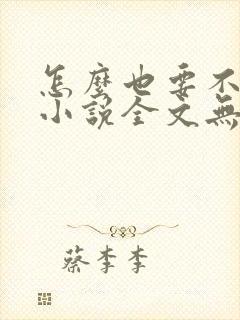 怎麼也要不
小說全文無
蔡李李